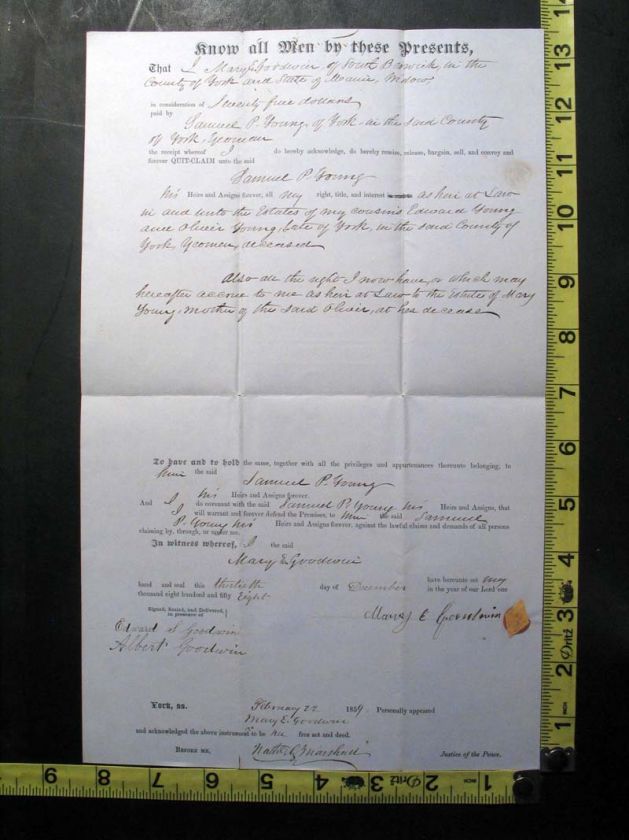 Know all Men by these Presents,
That I Mary E Goodwin of South Berwick, in the
County of York and State of Maine, Widow,
in consideration of Seventy five dollars
paid by
Samuel P. Young, of York in the said County
of York, Yeoman
the receipt whereof I do hereby acknowledge, do hereby remise, release, bargain, sell, and convey and
forever QUIT-CLAIM unto the said
Samuel P. Young
his Heirs and Assigns forever, all my right, title, and interest as heir at Law
in and unto the Estates of my cousins Edward Young
and Oliver Young, late of York, in the said County of
York, Yeomen, deceased
Also all the right I now have, or which may
hereafter accrue to me as heir at Law to the Estate of Mary
Young, mother of the said Oliver, at her decease
To have and to hold the same, together with all the privileges and appurtenances thereunto belonging, to
him the said Samuel P. Young
his Heirs and Assigns forever.
And I do covenant with the said Samuel P. Young, his Heirs and Assigns, that
I will warrant and forever defend the Premises, to him the said Samuel
P. Young his Heirs and Assigns forever, against the lawful claims and demands of all persons
claiming by, through, or under me.
In witness whereof, I the said
Mary E Goodwin
have hereunto set my
hand and seal this thirtieth day of December in the year of our Lord one
thousand eight hundred and fifty Eight
Signed, Sealed, and Delivered,
in presence of
Mary E Goodwin
Edward S Goodwin
Albert Goodwin
York, ss. February 22 1859. Personally appeared
Mary E. Goodwin
and acknowledged the above instrument to be her free act and deed.
BEFORE ME, Nathl G Marshall Justice of the Peace.
13
12
11
10
9
8
7
6
5
4
3
Dritz
2
1
INCH
9
8
7
6
5
4
3
Dritz
2
1
INCH